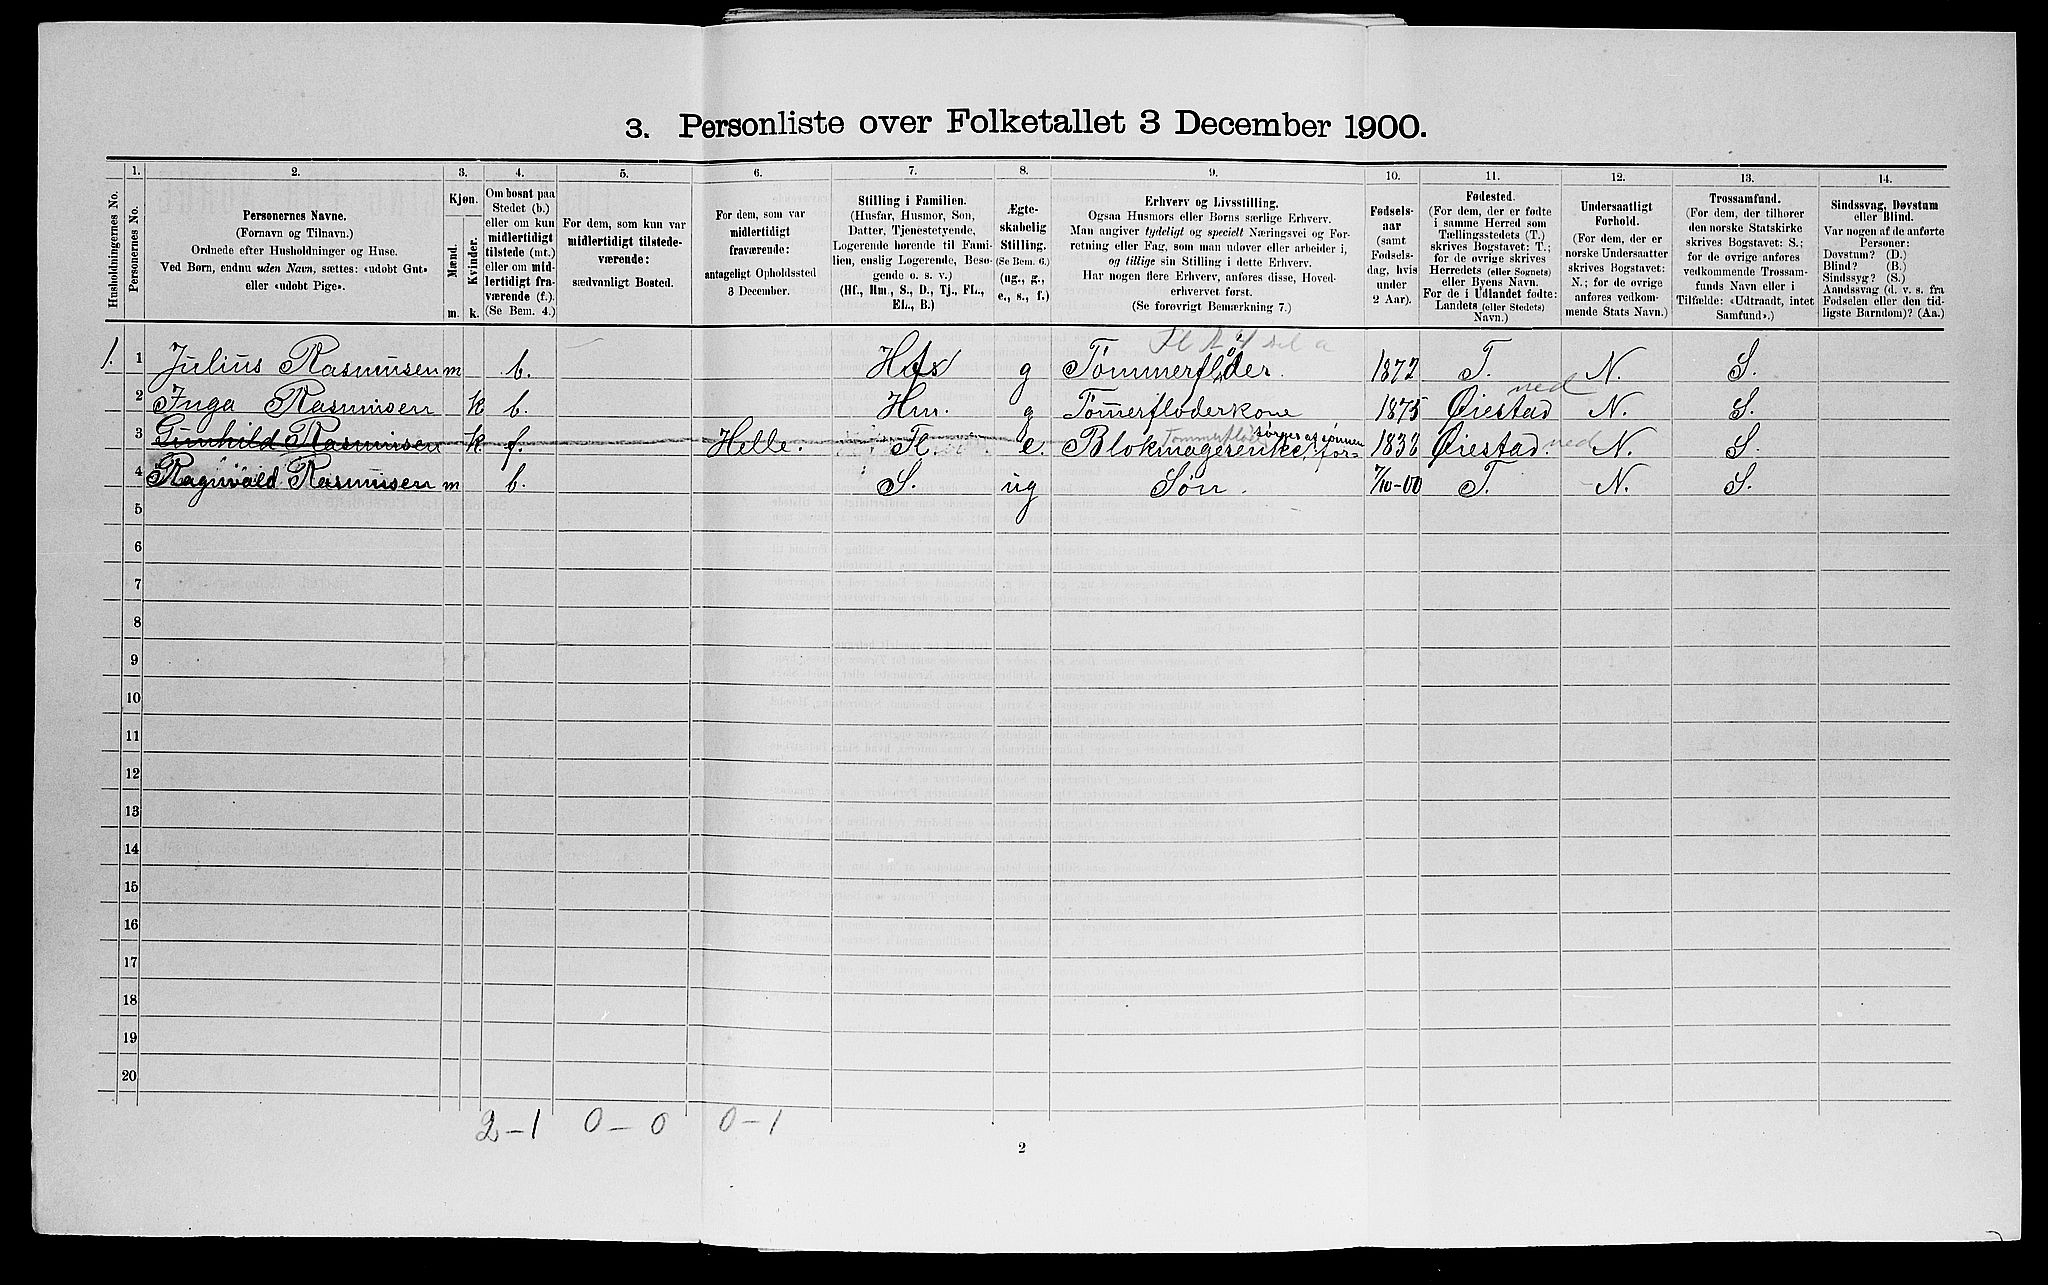 3. Personliste over Folketallet 3 December 1900.
Husholdningernes No.
1.
Personernes No.
2.
Personernes Navne.
(Fornavn og Tilnavn.)
Ordnede efter Husholdninger og Huse.
Ved Børn, endnu uden Navn, sættes: «udøbt Gut»
eller «udøbt Pige».
3.
Kjøn.
Mænd.
Kvinder.
m.
k.
4.
Om bosat paa
Stedet (b.)
eller om kun
midlertidigt
tilstede (mt.)
eller om mid-
lertidigt fra-
værende (f.).
(Se Bem. 4.)
5.
For dem, som kun var
midlertidigt tilstede-
værende:
sædvanligt Bosted.
6.
For dem, som var
midlertidigt
fraværende:
antageligt Opholdssted
3 December.
7.
Stilling i Familien.
(Husfar, Husmor, Søn,
Datter, Tjenestetyende,
Logerende hørende til Fami-
lien, enslig Logerende, Besø-
gende o. s. v.)
(Hf., Hm., S., D., Tj., FL.,
EL., B.)
8.
Ægte-
skabelig
Stilling.
(Se Bem. 6.)
(ug., g.,
e., s., f.)
9.
Erhverv og Livsstilling.
Ogsaa Husmors eller Børns særlige Erhverv.
Man angiver tydeligt og specielt Næringsvei og For-
retning eller Fag, som man udøver eller arbeider i,
og tillige sin Stilling i dette Erhverv.
Har nogen flere Erhverv, anføres disse, Hoved-
erhvervet først.
(Se forøvrigt Bemærkning 7.)
10.
Fødsels-
aar
(samt
Fødsels-
dag, hvis
under
2 Aar).
11.
Fødested.
(For dem, der er fødte
i samme Herred som
Tællingsstedets (T.)
skrives Bogstavet: T.;
for de øvrige skrives
Herredets (eller Sognets)
eller Byens Navn.
For de i Udlandet fødte:
Landets (eller Stedets)
Navn.)
12.
Undersaatligt
Forhold.
(For dem, der er
norske Undersaatter
skrives Bogstavet:
N.; for de øvrige
anføres vedkom-
mende Stats Navn.)
13.
Trossamfund.
(For dem, der tilhører
den norske Statskirke
skrives Bogstavet: S.;
for de øvrige anføres
vedkommende Trossam-
funds Navn eller i
Tilfælde: «Udtraadt, intet
Samfund».)
14.
Sindssvag, Døvstum
eller Blind.
Var nogen af de anførte
Personer:
Døvstum? (D.)
Blind? (B.)
Sindssyg? (S.)
Aandssvag (d. v. s. fra
Fødselen eller den tid-
ligste Barndom)? (Aa.)
1. 1 Julius Rasmusen m b. Hf g Tømmerfløder. 1872 T. N. S.
2 Inga Rasmusen k b. Hm. g Tømerfløderkone 1875 Øiestad ned N. S.
3 Gunhild Rasmusen k f. Helle. Fl. e. Blokmagerenke, Tømmerfløder sørges af sønnen for 1838 Øiestad. ned N. S.
4 Ragnvald Rasmusen m b. S. ug Søn. 7/10-00 T. N. S.
5
6
7
8
9
10
11
12
13
14
15
16
17
18
19
20
2-1 0-0 0-1
2